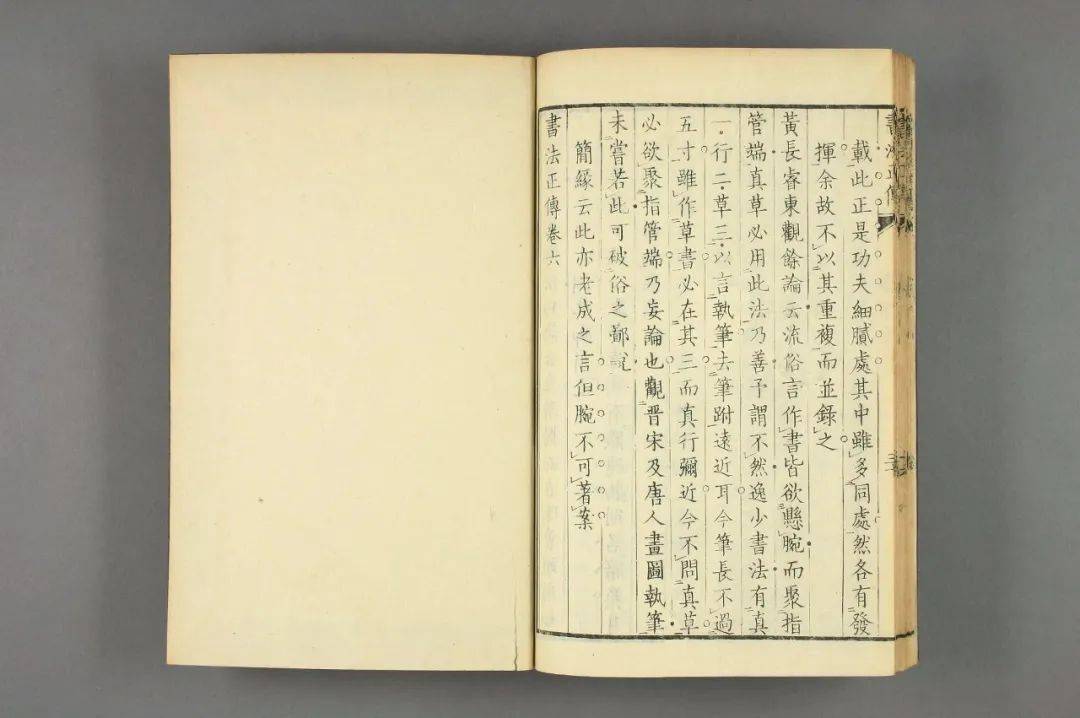 書法正傳
載此正是功夫細膩處其中雖多同處然各有發
揮余故不以其重複而並錄之
黃長睿東觀餘論云流俗言作書皆欲懸腕而聚指
管端真草必用此法乃善予謂不然逸少書法有真
一行二草三以言執筆去筆跗遠近耳今筆長不過
五寸雖作草書必在其三而真行彌近今不問真草
必欲聚指管端乃妄論也觀晉宋及唐人畫圖執筆
未嘗若此可破俗之鄙說
簡緣云此亦老成之言但腕不可著案
書法正傳卷六